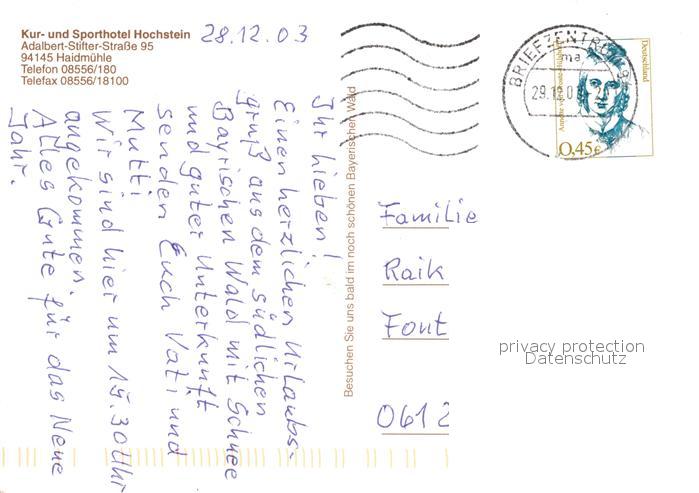 Kur- und Sporthotel Hochstein
Adalbert-Stifter-Straße 95
94145 Haidmühle
Telefon 08556/180
Telefax 08556/18100
28.12.03
Ihr Lieben!
Einen herzlichen Urlaubs-
gruß aus dem südlichen
Bayrischen Wald mit Schnee
und guter Unterkunft
senden Euch Vati und
Mutti
Wir sind hier um 15.30 Uhr
angekommen.
Alles Gute für das Neue
Jahr.
Besuchen Sie uns bald im noch schönen Bayerischen Wald
BRIEFZENTRUM
ma
29.12.03
Deutschland
0,45€
Familie
Raik
Font
0612
privacy protection
Datenschutz